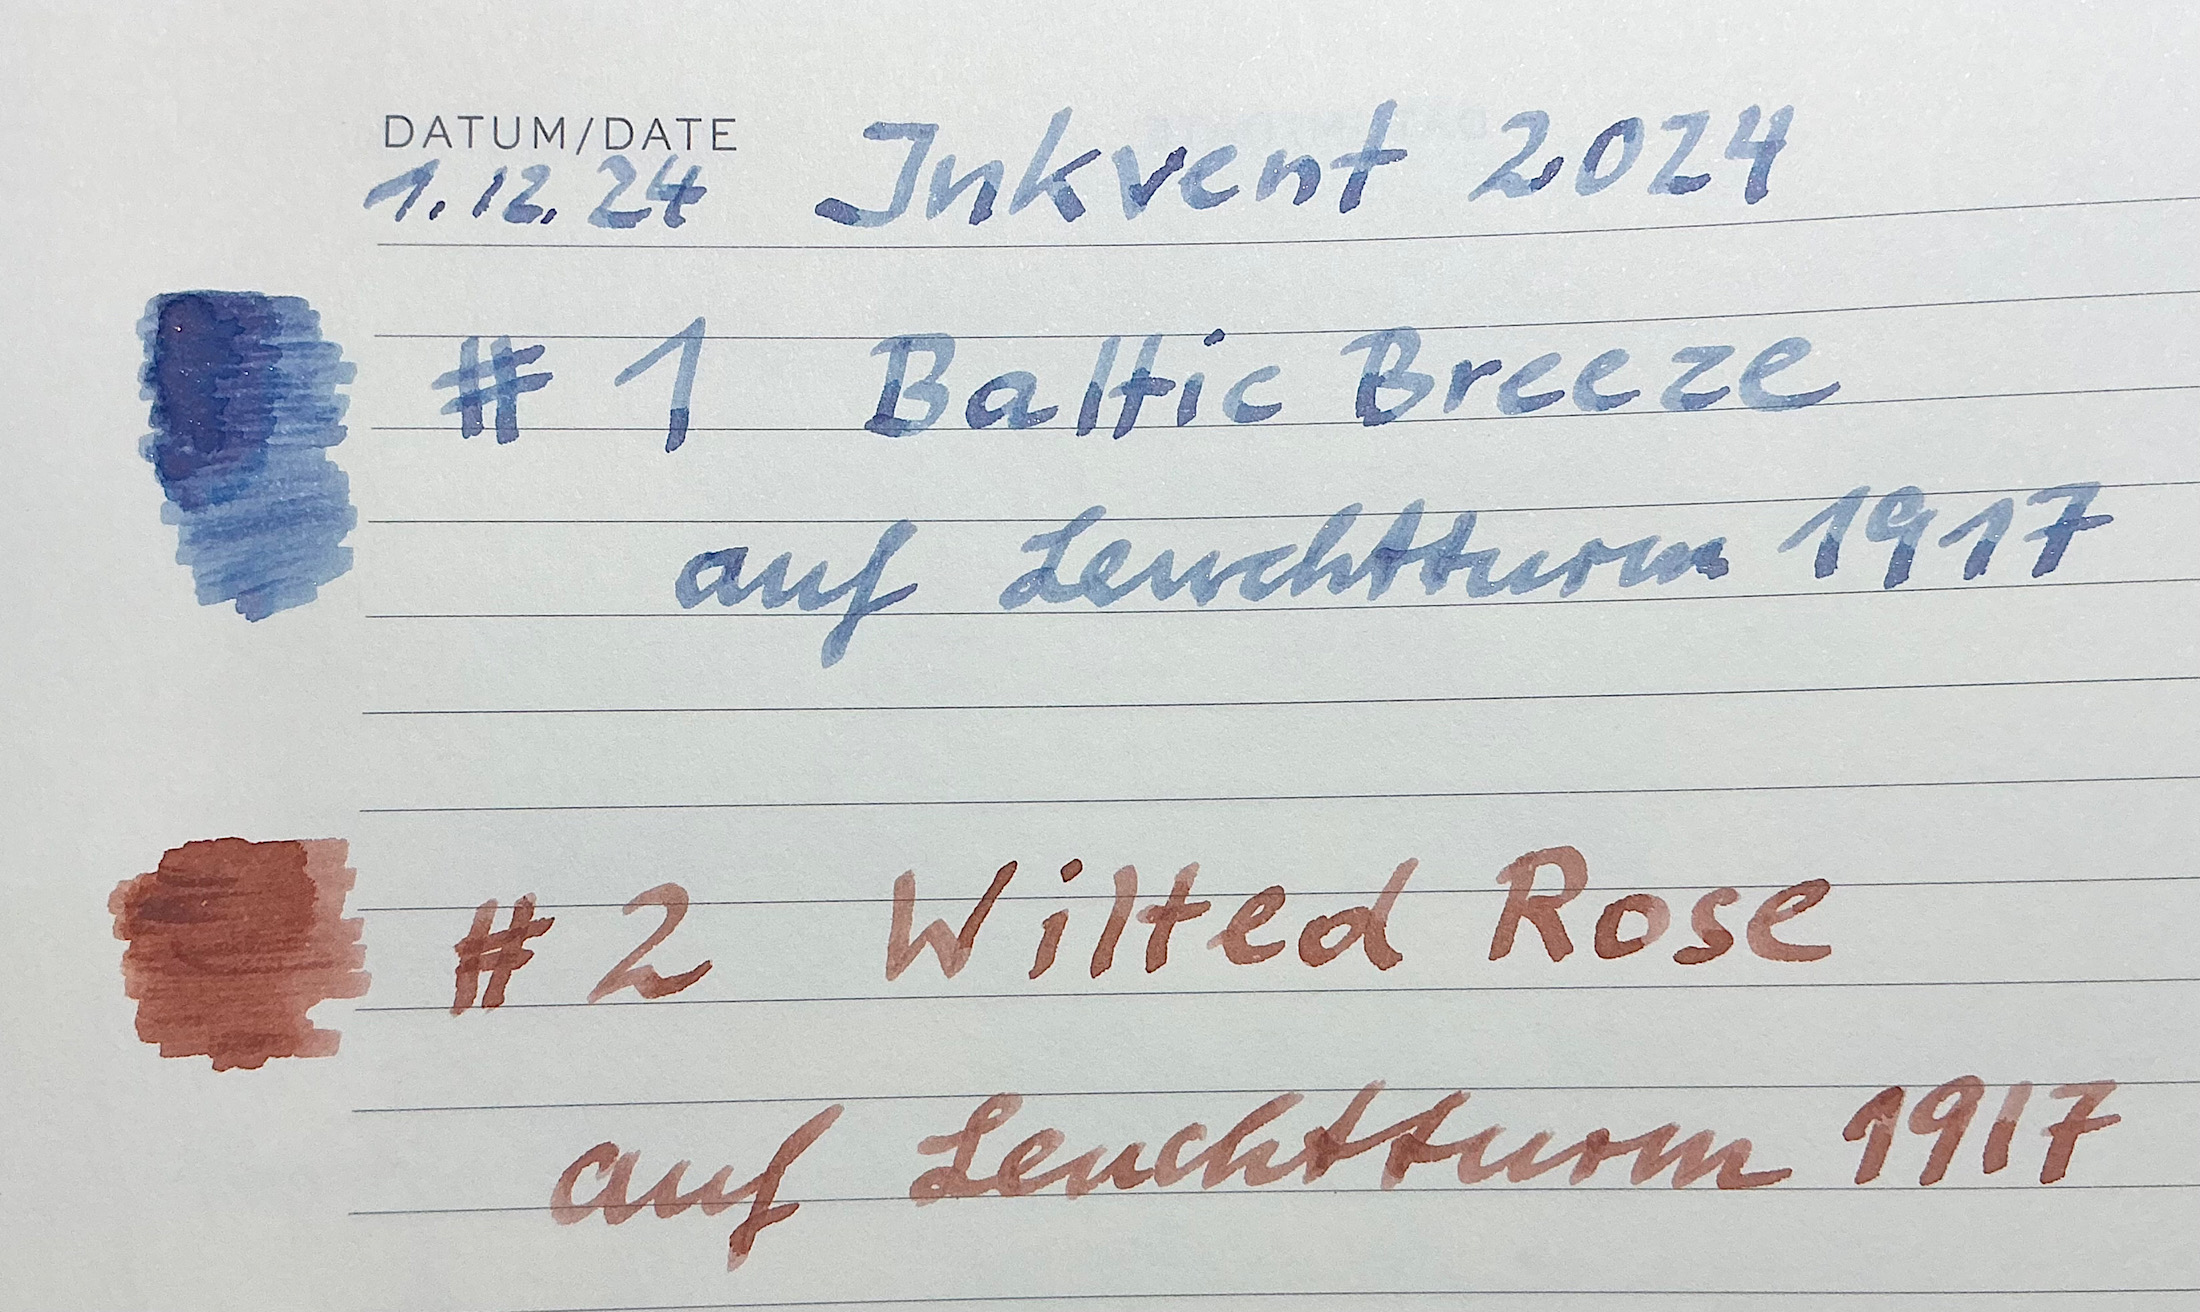 DATUM/DATE
1.12.24 Inkvent 2024
# 1 Baltic Breeze
auf Leuchtturm 1917
# 2 Wilted Rose
auf Leuchtturm 1917